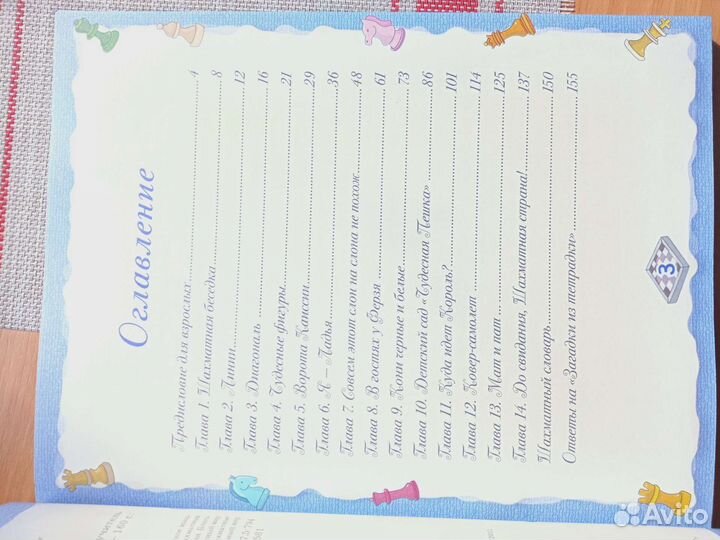 Оглавление
Предисловие для взрослых 4
Глава 1. Шахматная беседка 8
Глава 2. Линии 12
Глава 3. Диагональ 16
Глава 4. Чудесные фигуры 21
Глава 5. Ворота Каиссии 29
Глава 6. Я – Ладья 36
Глава 7. Совсем этот слон на слона не похож 48
Глава 8. В гостях у Ферзя 61
Глава 9. Кони черные и белые 73
Глава 10. Детский сад «Чудесная Пешка» 86
Глава 11. Куда идет Король? 101
Глава 12. Ковер-самолет 114
Глава 13. Мат и пат 125
Глава 14. До свидания, Шахматная страна! 137
Шахматный словарь 150
Ответы на «Загадки из тетрадки» 155
3
Avito